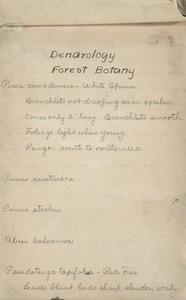 Dendrology
Forest Botany
Picea canadensis - White Spruce
Branchlets not drooping as in excelsa
Cones only 2" long. Branchlets smooth
Foliage light when young
Range: south to northern U.S.
Pinus austriaca
Pinus strobus
Abies balsamea
Pseudotsuga taxifolia - Red Fir
Leaves blunt, buds sharp, slender, scaly